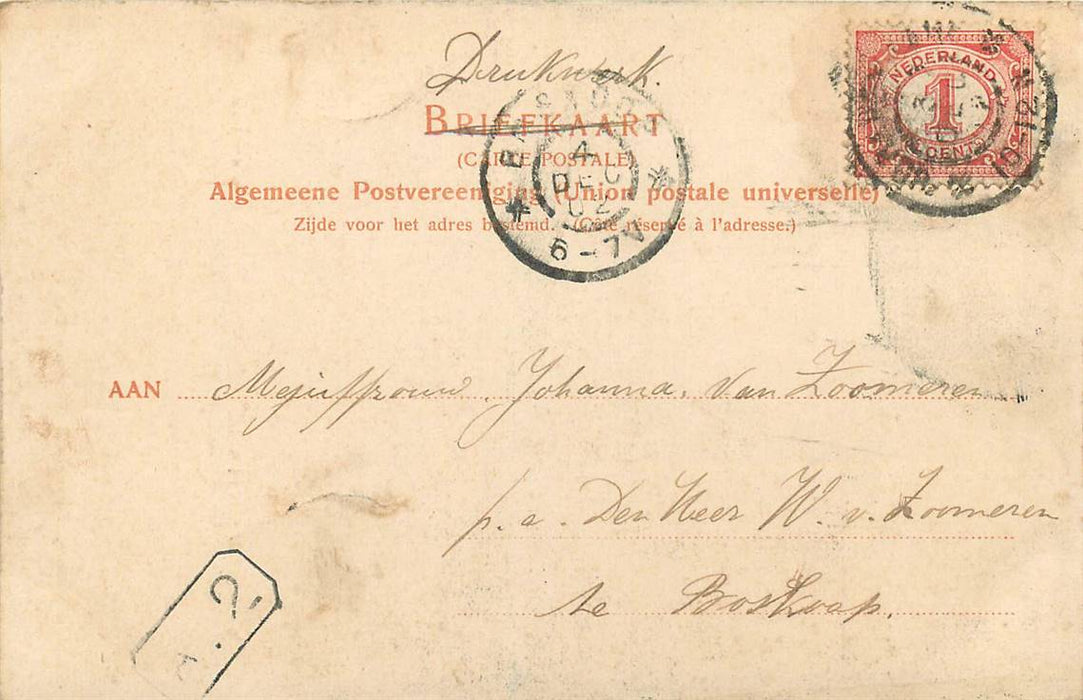 Drukwerk.
BRIEFKAART
(CARTE POSTALE)
Algemeene Postvereeniging (Union postale universelle)
Zijde voor het adres bestemd. (Côté réservé à l'adresse.)
NEDERLAND
1
CENT
4
DEC
02
6-7V
10-12
AAN Mejuffrouw Johanna. Van Zoomeren
p. a. Den Heer W. v. Zoomeren
te Boskoop.
2.